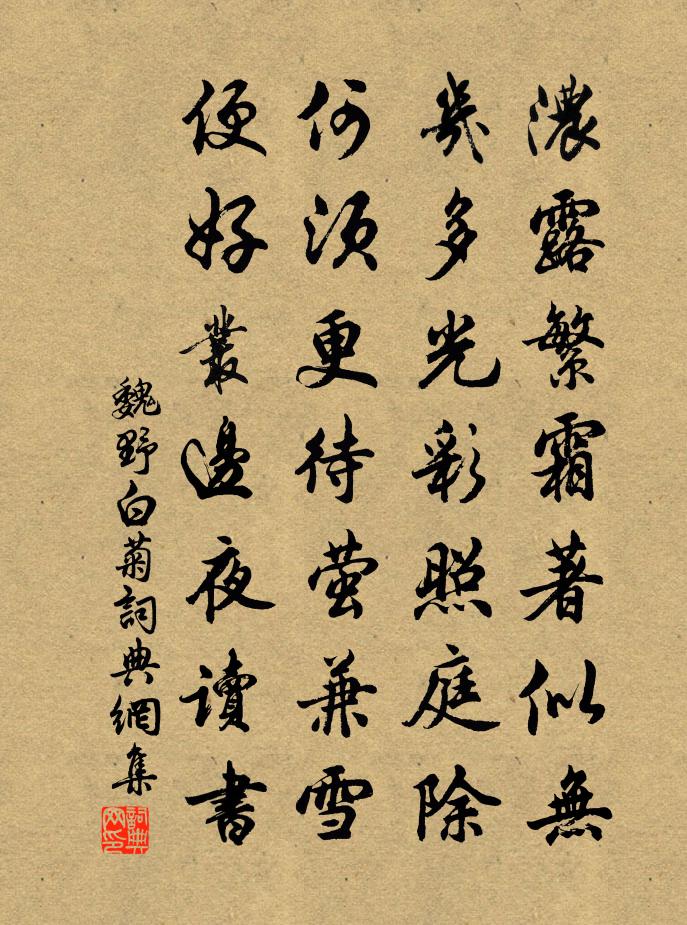 濃露繁霜著似無
幾多光彩照庭除
何須更待萤兼雪
便好叢邊夜讀書
魏野白菊詞典網集
詞典网印